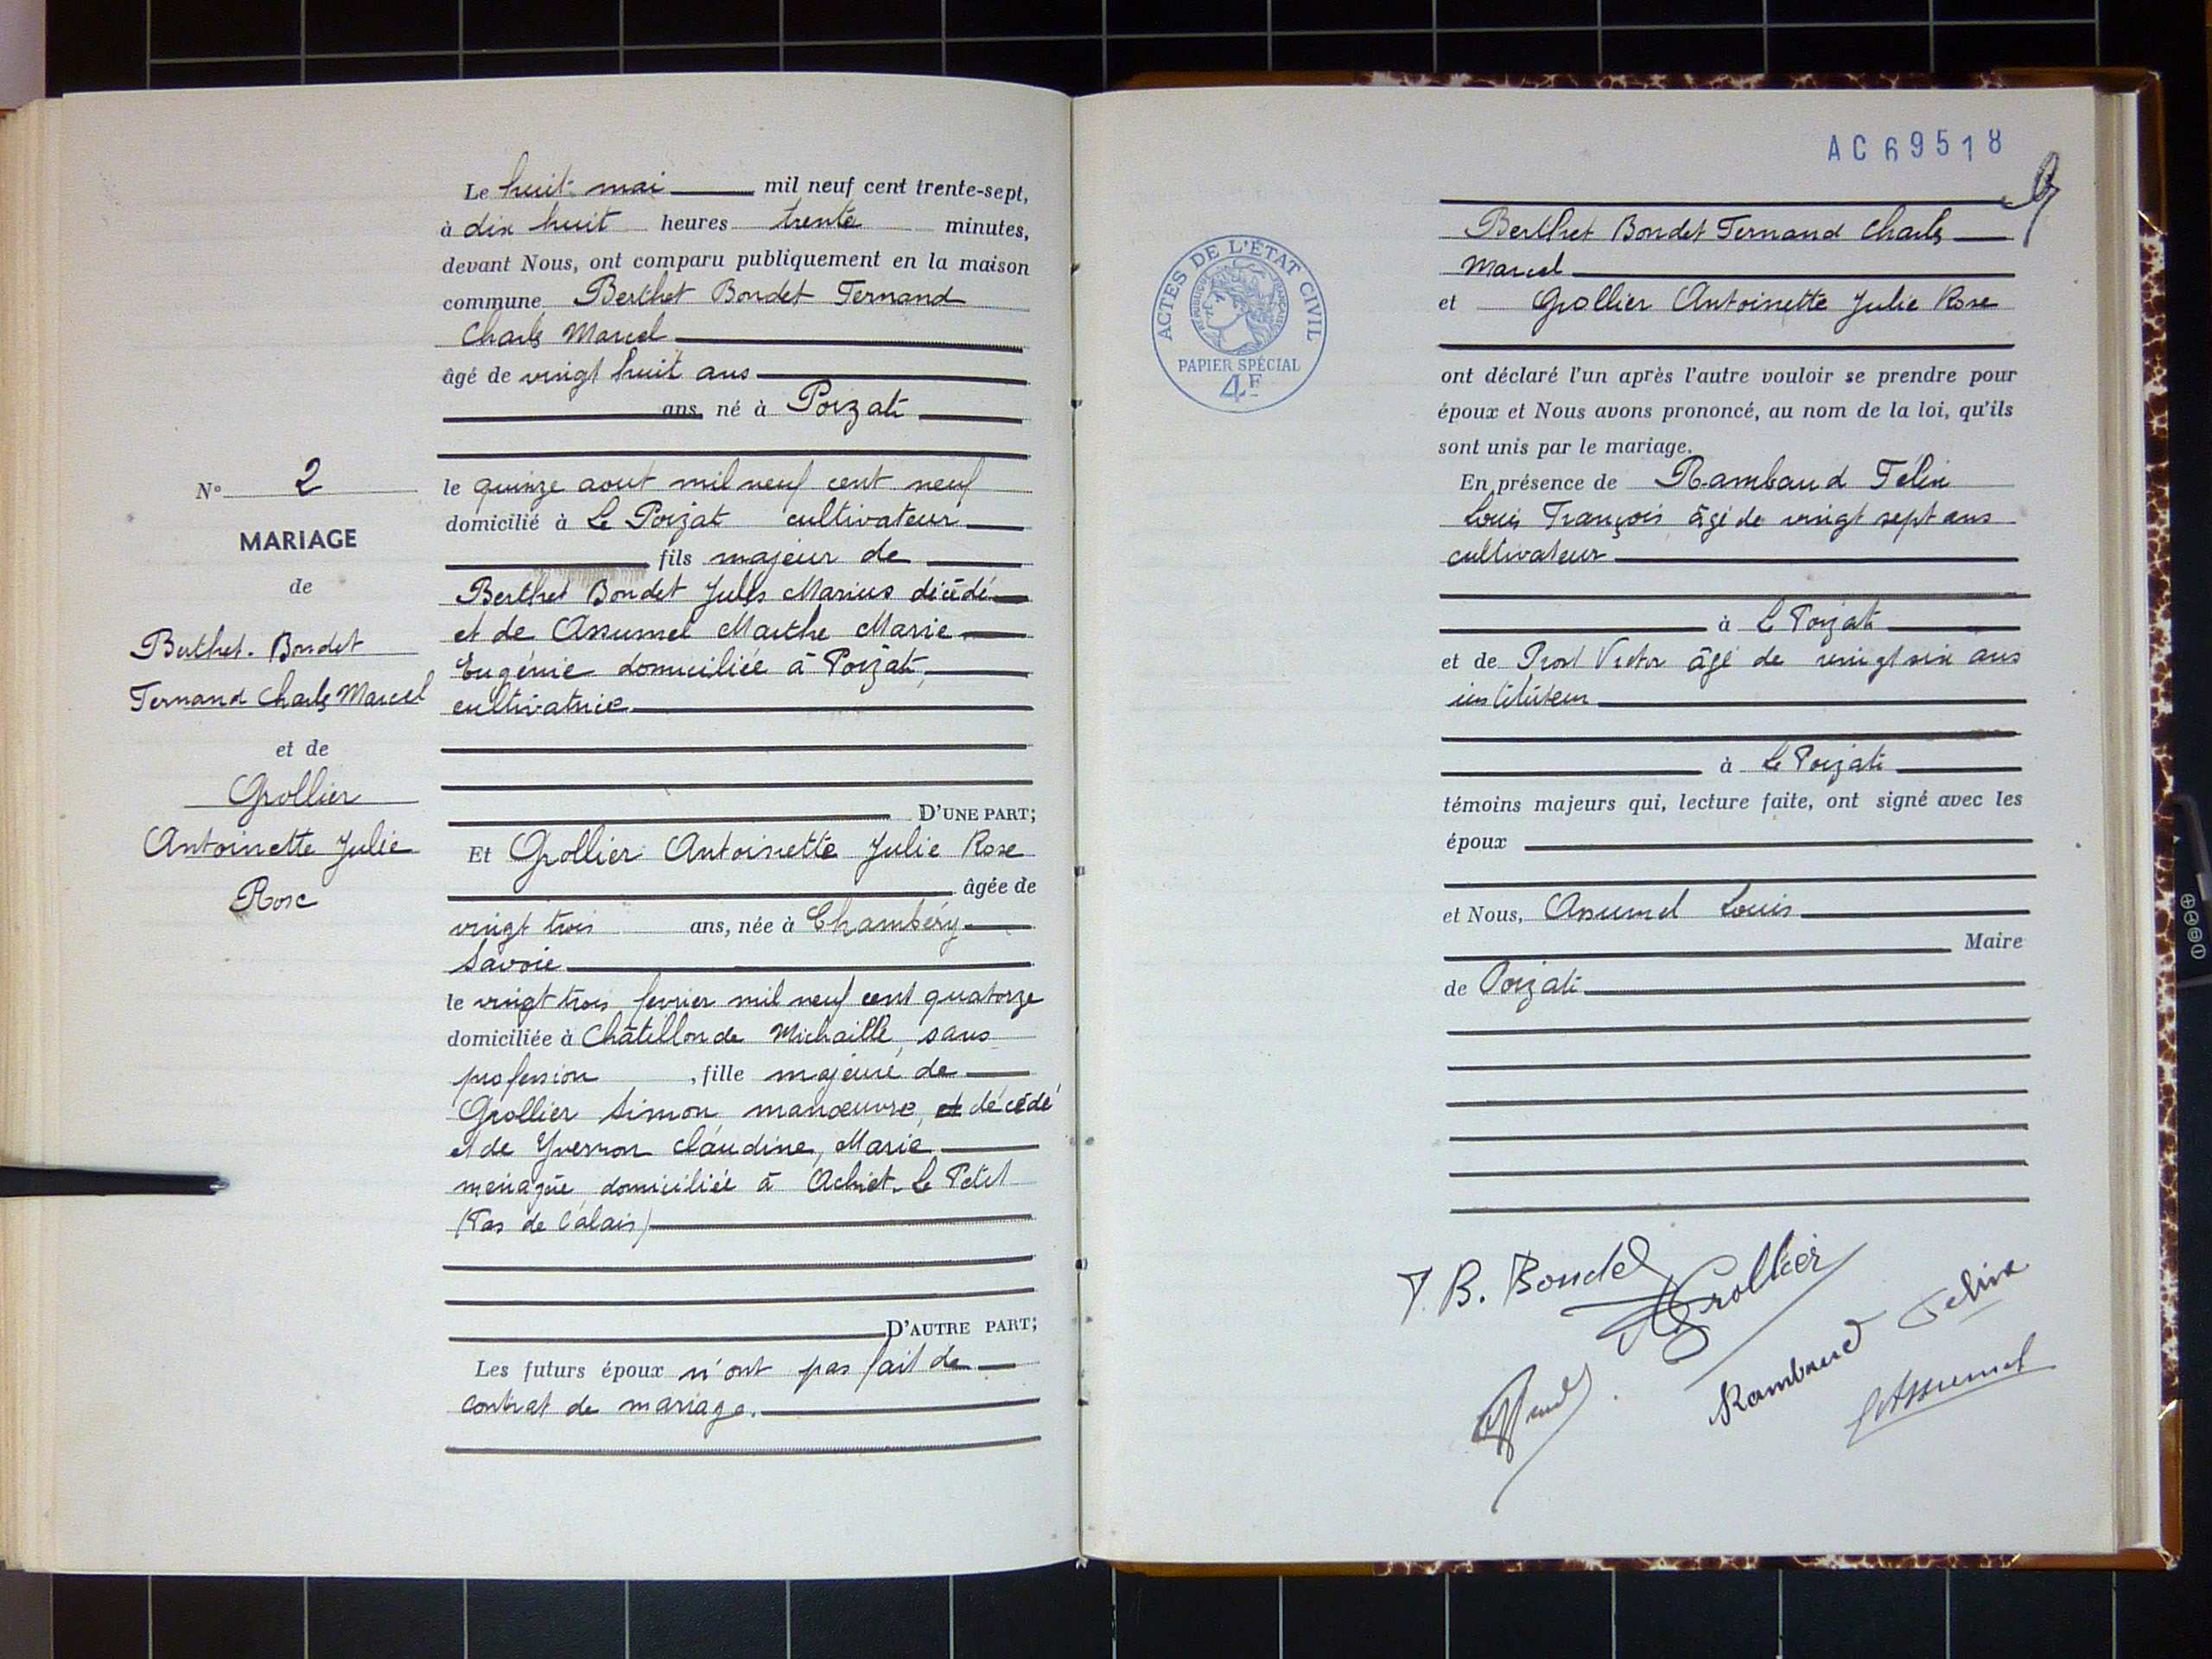 Le huit mai mil neuf cent trente-sept,
à dix huit heures trente minutes,
devant Nous, ont comparu publiquement en la maison
commune Berthet Bondet Fernand
Charles Marcel
âgé de vingt huit ans
ans, né à Poizat
le quinze aout mil neuf cent neuf
domicilié à Le Poizat cultivateur
fils majeur de
Berthet Bondet Jules Marius décédé
et de Assumel Marthe Marie
Eugénie domiciliée à Poizat,
cultivatrice
D'UNE PART;
Et Grollier Antoinette Julie Rose
âgée de
vingt trois ans, née à Chambéry
Savoie
le vingt trois fevrier mil neuf cent quatorze
domiciliée à Châtillon de Michaille, sans
profession, fille majeure de
Grollier Simon manœuvre, et décédé
et de Yverron Claudine, Marie
ménagère domiciliée à Achiet-Le Petit
(Pas de Calais)
D'AUTRE PART;
Les futurs époux n'ont pas fait de
contrat de mariage.
N° 2
MARIAGE
de
Berthet-Bondet
Fernand Charles Marcel
et de
Grollier
Antoinette Julie
Rose
AC 69518
9
ACTES DE L'ÉTAT CIVIL
RÉPUBLIQUE FRANÇAISE
PAPIER SPÉCIAL
4F
Berthet Bondet Fernand Charles
Marcel
et Grollier Antoinette Julie Rose
ont déclaré l'un après l'autre vouloir se prendre pour
époux et Nous avons prononcé, au nom de la loi, qu'ils
sont unis par le mariage.
En présence de Rambaud Félix
Louis François âgé de vingt sept ans
cultivateur
à Le Poizat
et de Prost Victor âgé de vingt six ans
instituteur
à Le Poizat
témoins majeurs qui, lecture faite, ont signé avec les
époux
et Nous, Assumel Louis
Maire
de Poizat
F. B. Bondet
A Grollier
Rambaud Felix
L Assumel